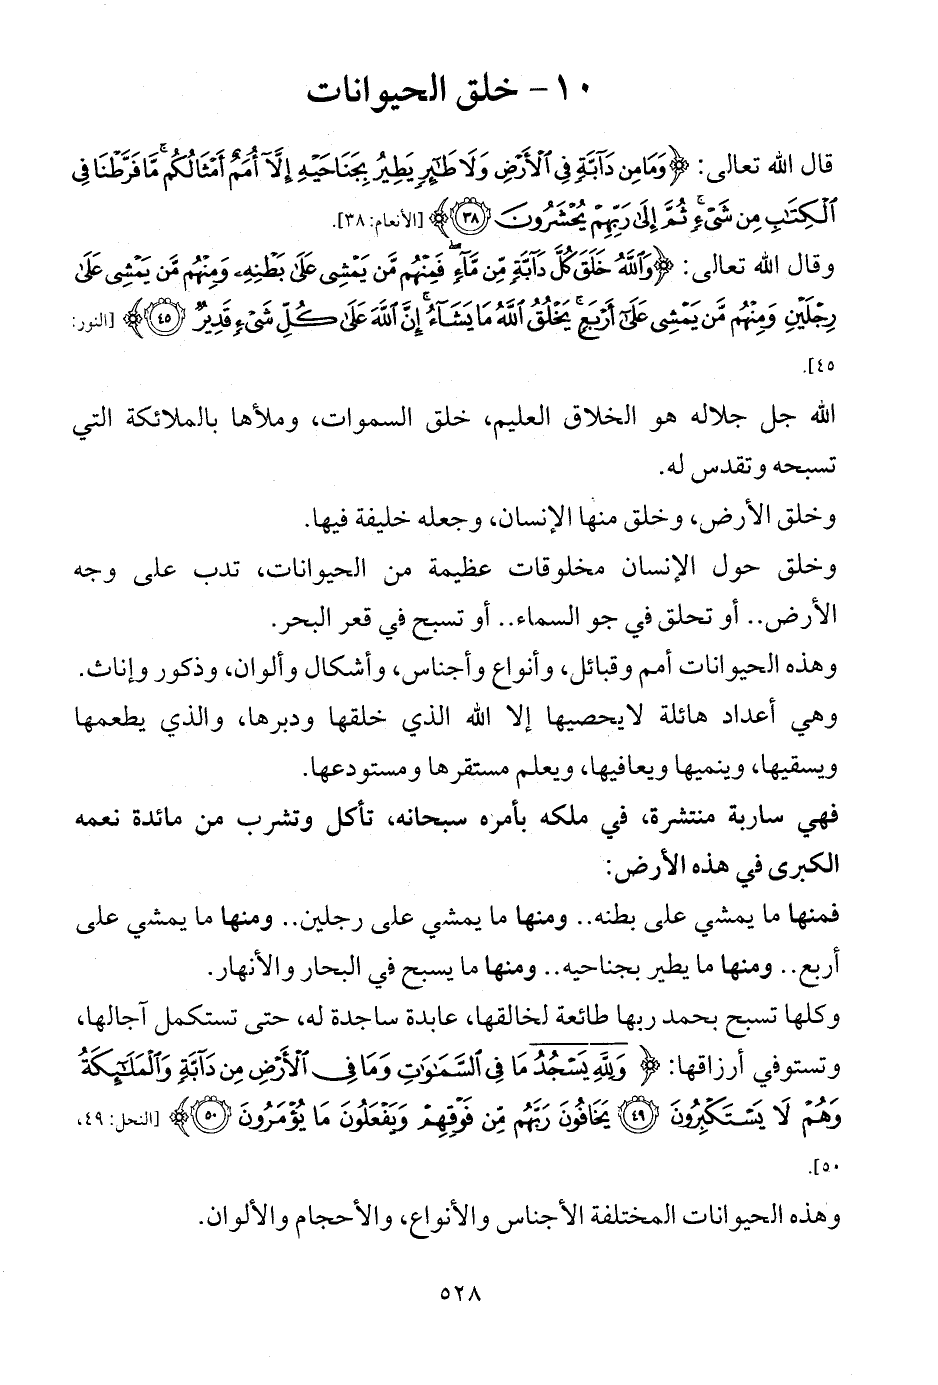 ١٠- خلق الحيوانات
قال الله تعالى: ﴿وَمَا مِن دَآبَّةٍ فِى ٱلْأَرْضِ وَلَا طَٰٓئِرٍ يَطِيرُ بِجَنَاحَيْهِ إِلَّآ أُمَمٌ أَمْثَالُكُم ۚ مَّا فَرَّطْنَا فِى
ٱلْكِتَٰبِ مِن شَىْءٍ ۚ ثُمَّ إِلَىٰ رَبِّهِمْ يُحْشَرُونَ ٣٨﴾ [الأنعام: ٣٨].
وقال الله تعالى: ﴿وَٱللَّهُ خَلَقَ كُلَّ دَآبَّةٍ مِّن مَّآءٍ ۖ فَمِنْهُم مَّن يَمْشِى عَلَىٰ بَطْنِهِۦ وَمِنْهُم مَّن يَمْشِى عَلَىٰ
رِجْلَيْنِ وَمِنْهُم مَّن يَمْشِى عَلَىٰٓ أَرْبَعٍ ۚ يَخْلُقُ ٱللَّهُ مَا يَشَآءُ ۚ إِنَّ ٱللَّهَ عَلَىٰ كُلِّ شَىْءٍ قَدِيرٌ ٤٥﴾ [النور:
٤٥].
الله جل جلاله هو الخلاق العليم، خلق السموات، وملأها بالملائكة التي
تسبحه وتقدس له.
وخلق الأرض، وخلق منها الإنسان، وجعله خليفة فيها.
وخلق حول الإنسان مخلوقات عظيمة من الحيوانات، تدب على وجه
الأرض.. أو تحلق في جو السماء.. أو تسبح في قعر البحر.
وهذه الحيوانات أمم وقبائل، وأنواع وأجناس، وأشكال وألوان، وذكور وإناث.
وهي أعداد هائلة لايحصيها إلا الله الذي خلقها ودبرها، والذي يطعمها
ويسقيها، وينميها ويعافيها، ويعلم مستقرها ومستودعها.
فهي ساربة منتشرة، في ملكه بأمره سبحانه، تأكل وتشرب من مائدة نعمه
الكبرى في هذه الأرض:
فمنها ما يمشي على بطنه.. ومنها ما يمشي على رجلين.. ومنها ما يمشي على
أربع.. ومنها ما يطير بجناحيه.. ومنها ما يسبح في البحار والأنهار.
وكلها تسبح بحمد ربها طائعة لخالقها، عابدة ساجدة له، حتى تستكمل آجالها،
وتستوفي أرزاقها: ﴿وَلِلَّهِ يَسْجُدُ مَا فِى ٱلسَّمَٰوَٰتِ وَمَا فِى ٱلْأَرْضِ مِن دَآبَّةٍ وَٱلْمَلَٰٓئِكَةُ
وَهُمْ لَا يَسْتَكْبِرُونَ ٤٩ يَخَافُونَ رَبَّهُم مِّن فَوْقِهِمْ وَيَفْعَلُونَ مَا يُؤْمَرُونَ ٥٠﴾ [النحل: ٤٩،
٥٠].
وهذه الحيوانات المختلفة الأجناس والأنواع، والأحجام والألوان.
٥٢٨